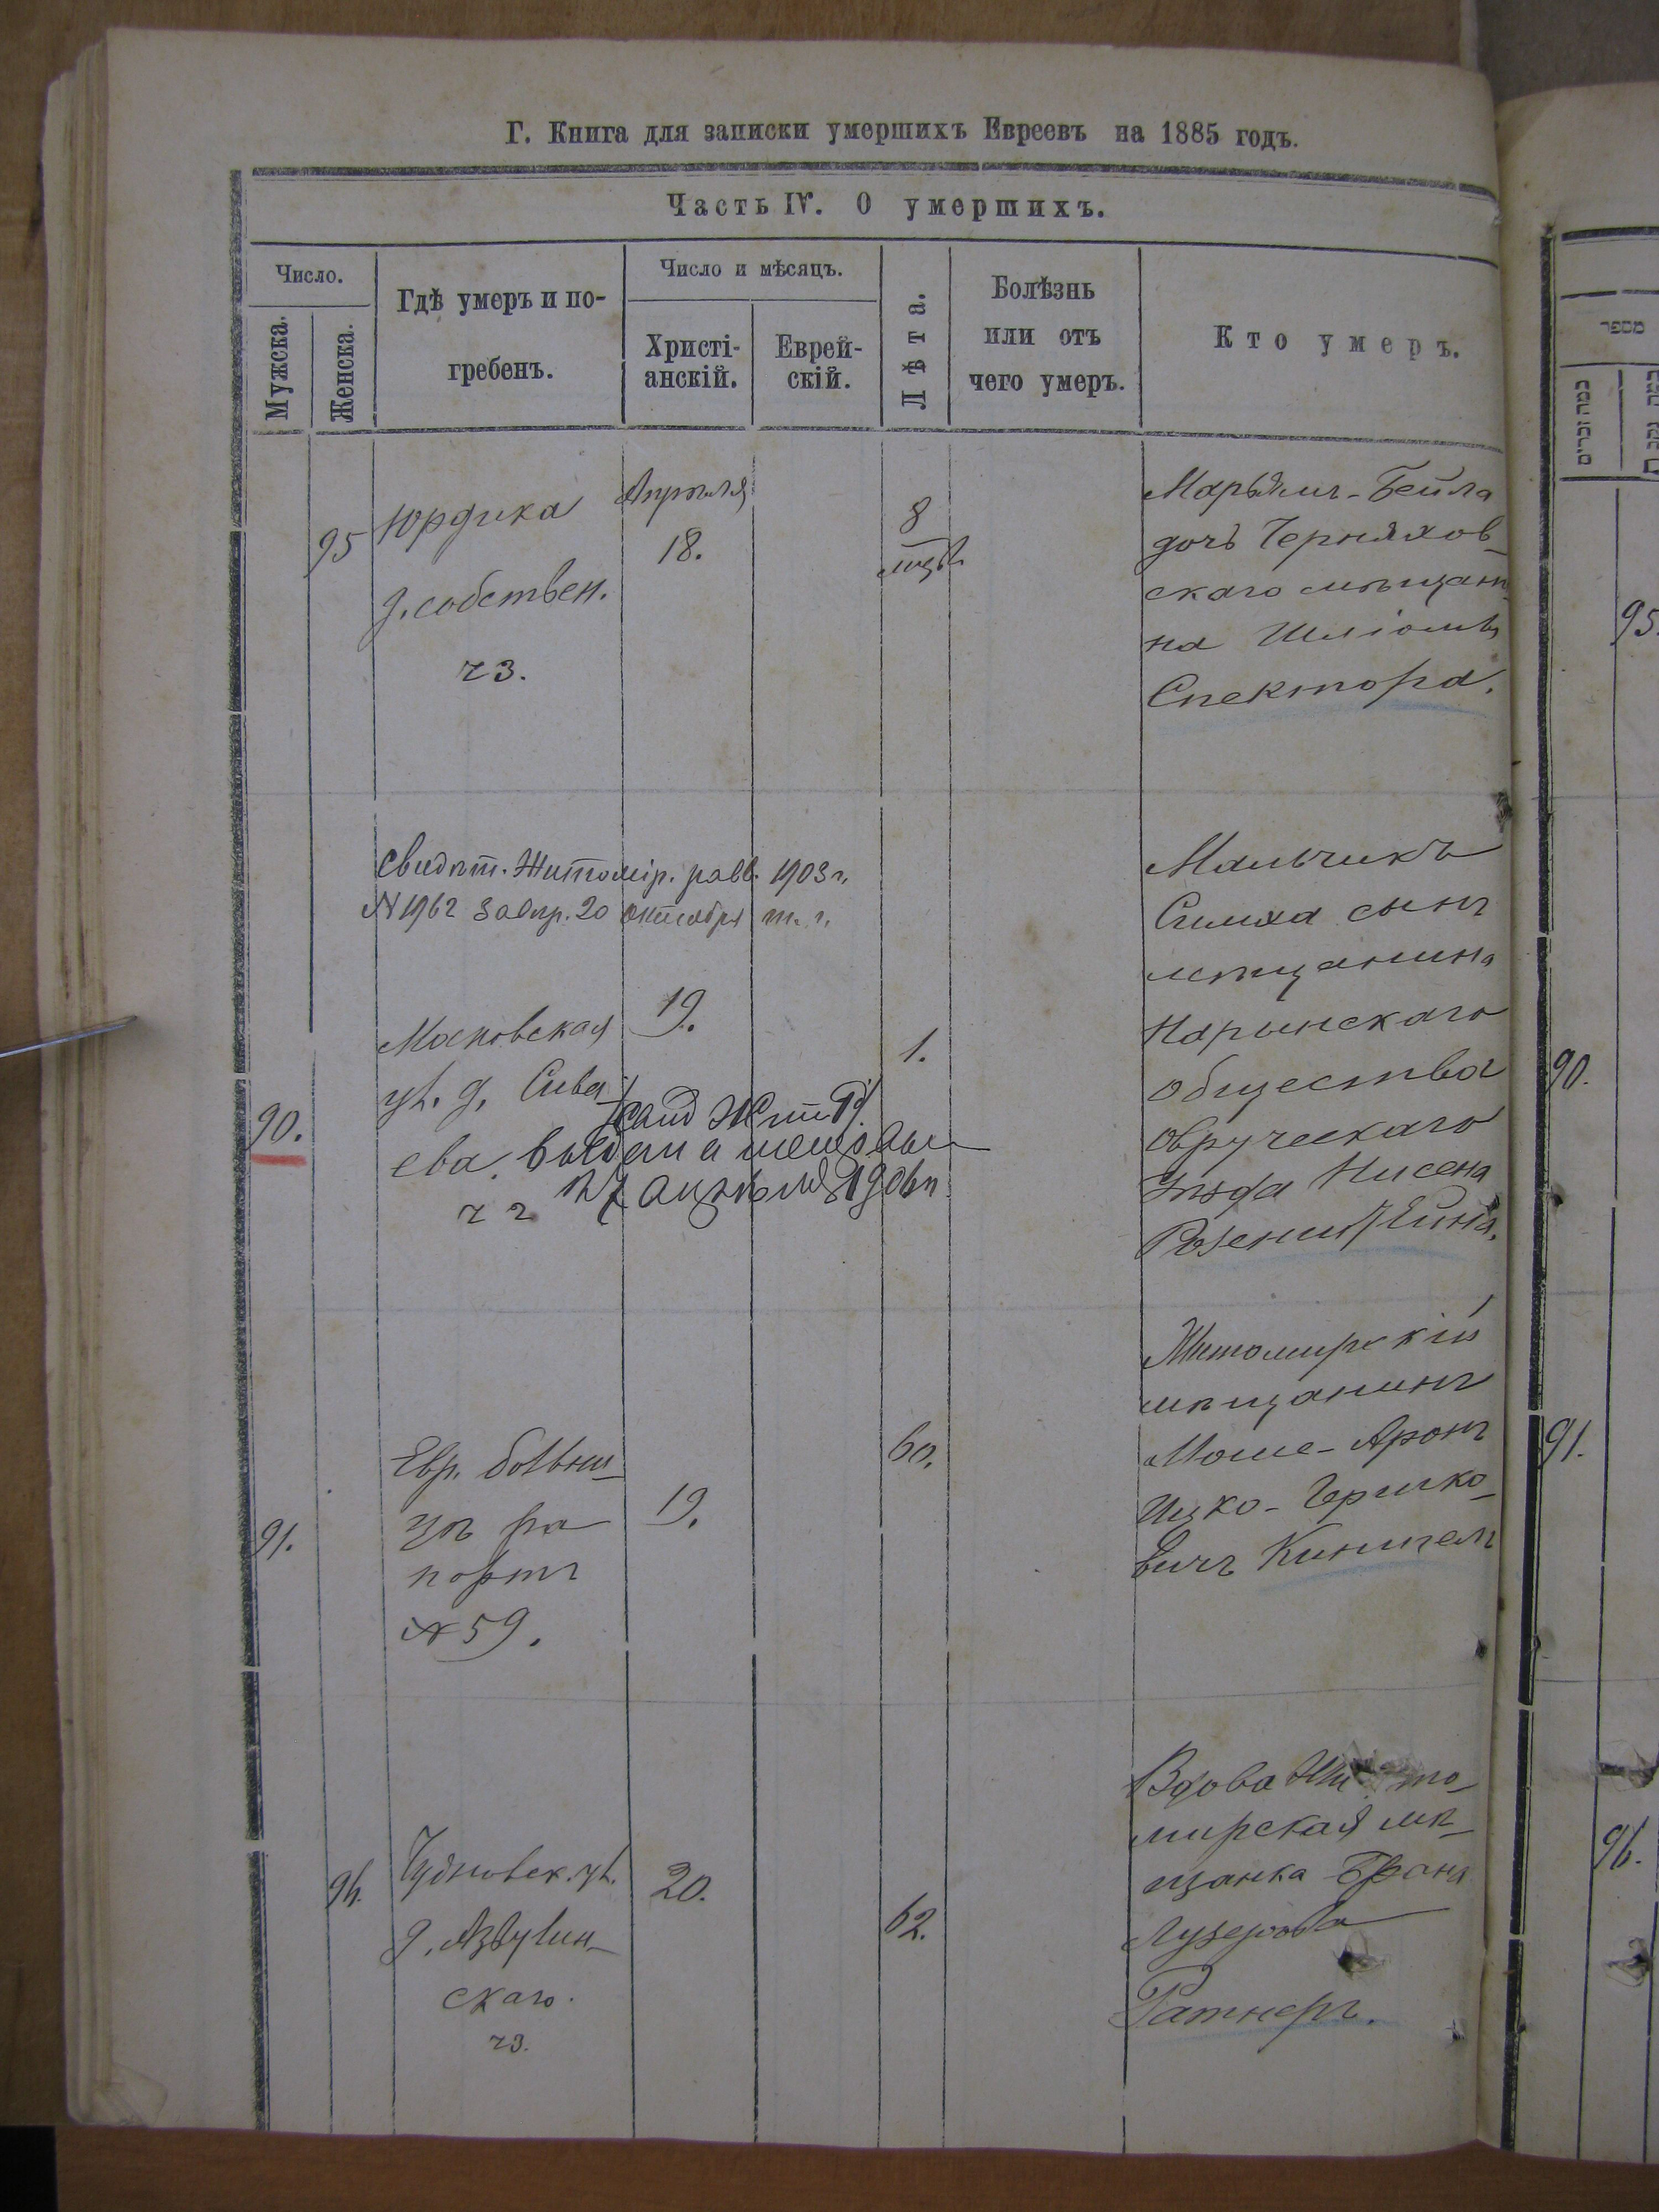 Г. Книга для записки умершихъ Евреевъ на 1885 годъ.
Часть IV. О умершихъ.
Число.
Мужска.
Женска.
Гдѣ умеръ и по-
гребенъ.
Число и мѣсяцъ.
Христі-
анскій.
Еврей-
скій.
Лѣта.
Болѣзнь
или отъ
чего умеръ.
Кто умеръ.
95
Юрдика
д. собствен.
ч 3.
Апрѣля
18.
8
Марьямъ-Бейла
дочь Черняхов-
скаго мѣщани
на Шліомы
Спектора.
Свидѣт. Житомір. равв. 1903 г.
N 1962 20 октября т. г.
90.
Московская
ул. д. Сива
ева.
ч 2
19.
1.
Мальчикъ
Симха сынъ
мѣщанина
Нарынскаго
общества
Овручскаго
уѣзда Нисена
Розенштейна.
91.
Евр. больни-
цѣ ра
портъ
№ 59.
19.
60.
Житомирскій
мѣщанинъ
Мошe-Аронъ
Ицко-Гершко-
вичъ
96.
Чудновск. ул.
д.
скаго.
ч 3.
20.
62.
Вдова Жито-
мирская мѣ-
щанка Браня
Лузерова
Ратнеръ.
כמה זכרים
95.
90.
91.
96.